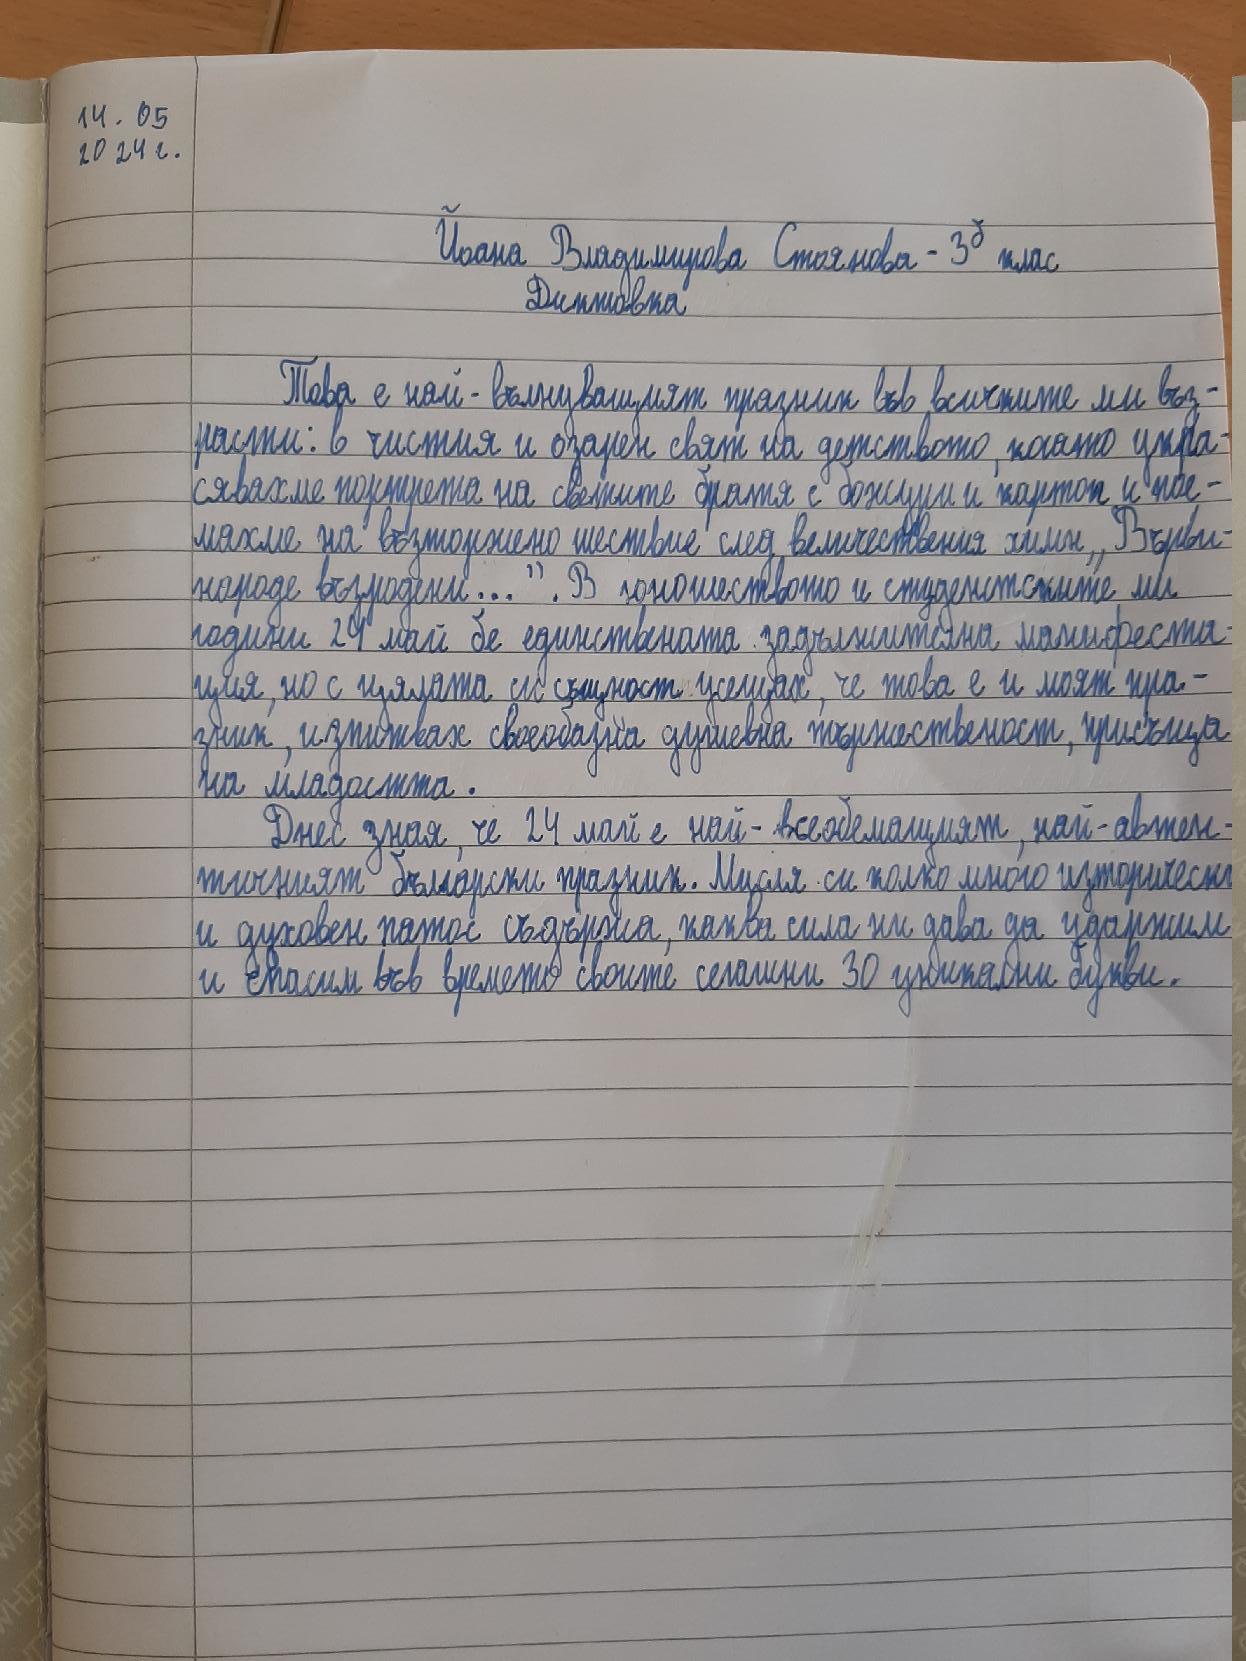 14. 05
2024г.
Йоана Владимирова Стоянова - 3б клас
Диктовка
Това е най-вълнуващият празник във всичките ми въз-
расти: в чистия и озарен свят на детството, когато укра-
сявахме портрета на светите братя с божури и картон и пое-
махме на възторжено шествие след величествения химн „Върви-
народе възродени...". В юношеството и студентските ми
години 24 май бе единствената задължителна манифеста-
ция, но с цялата си същност усещах, че това е и моят пра-
зник, изпитвах своеобазна душевна тържественост, присъща
на младостта.
Днес зная, че 24 май е най-всеобемащият, най-автен-
тичният български празник. Мисля си колко много изторически
и духовен патос съдържа, каква сила ни дава да удържим
и спасим във времето своите сегашни 30 уникални букви.